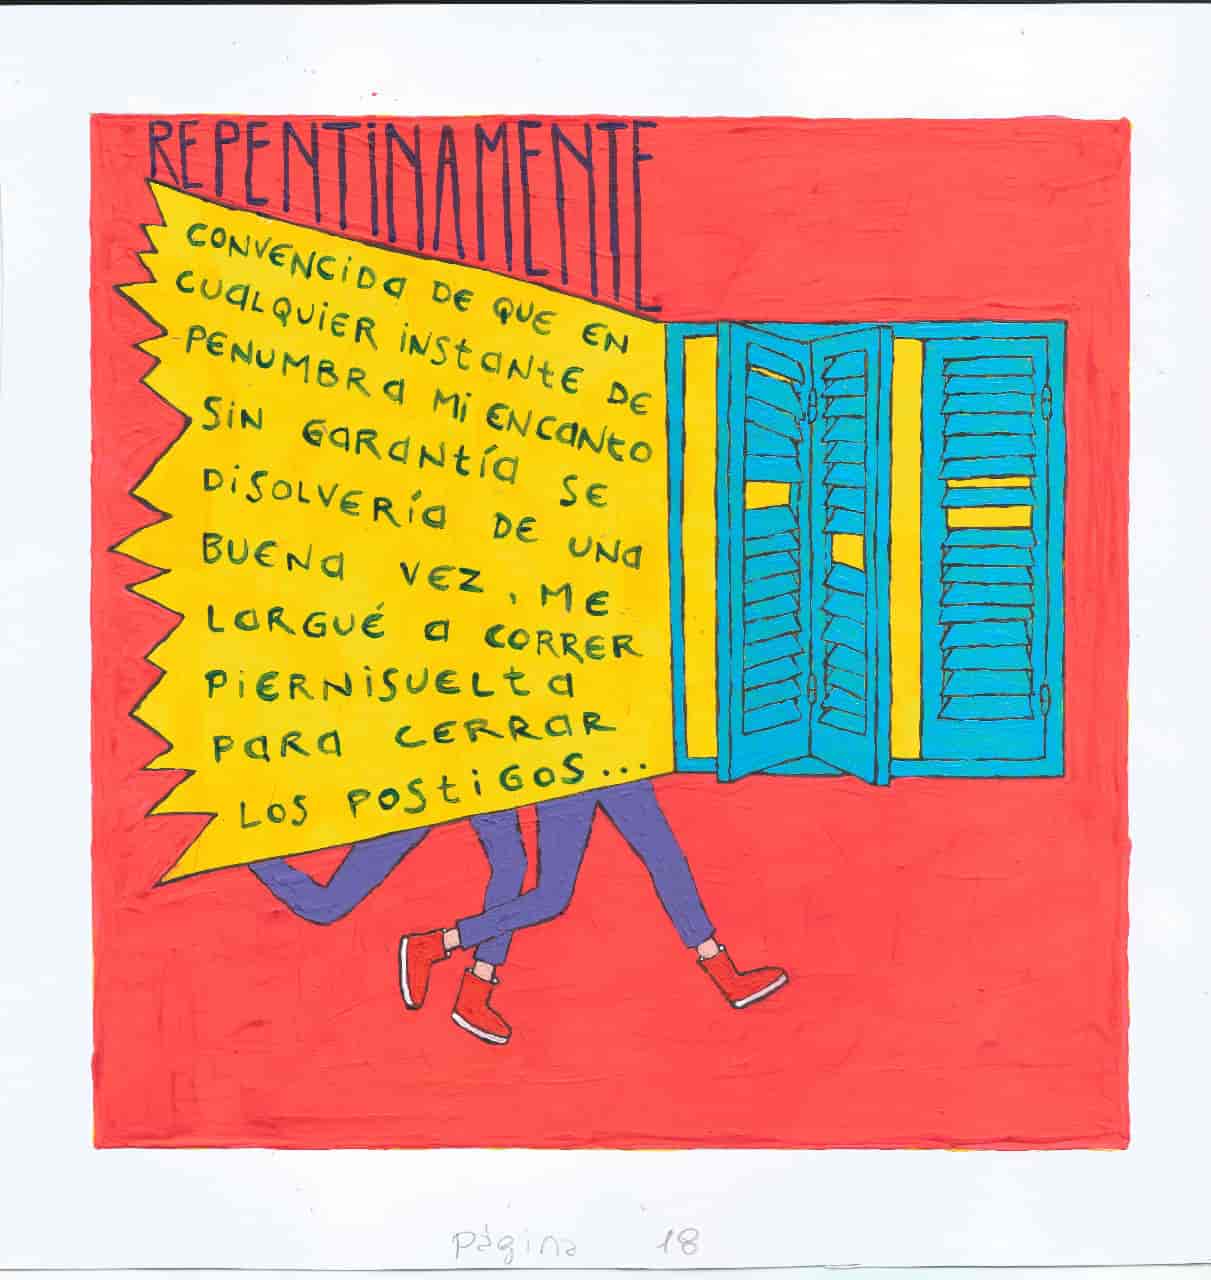 REPENTINAMENTE
CONVENCIDA DE QUE EN
CUALQUIER INSTANTE DE
PENUMBRA MI ENCANTO
SIN GARANTÍA SE
DISOLVERÍA DE UNA
BUENA VEZ, ME
LARGUÉ A CORRER
PIERNISUELTA
PARA CERRAR
LOS POSTIGOS...
Página 18